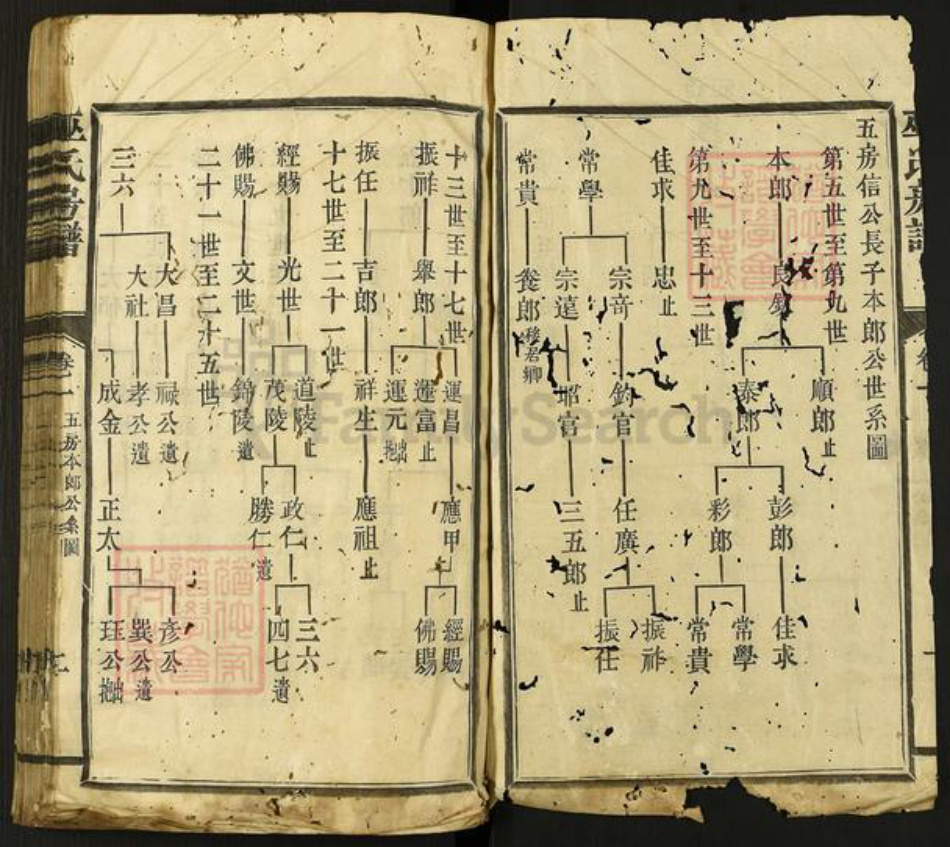 五房信公長子本郎公世系圖
第五世至第九世
本郎
良
順郎止
泰郎
彭郎
彩郎
佳求
常學
常貴
第九世至十三世
佳求
忠止
常學
宗竒
宗遠
鈞官
官
任廣
三五郎止
振祚
振任
常貴
養郎移居鄉
十三世至十七世
振祚
舉郎
運昌
運富止
運元拙
應甲
經賜
佛賜
振任
吉郎
祥生
應祖止
十七世至二十一世
經賜
光世
道陵止
茂陵
政仁
勝仁遺
三六
四七遺
佛賜
文世
錦陵遺
二十一世至二十五世
三六
大昌
大社
祿公遺
孝公遺
成金
正太
彥公
巽公遺
珏公拙
巫氏房譜
卷一
五房本郎公系圖
FamilySearch